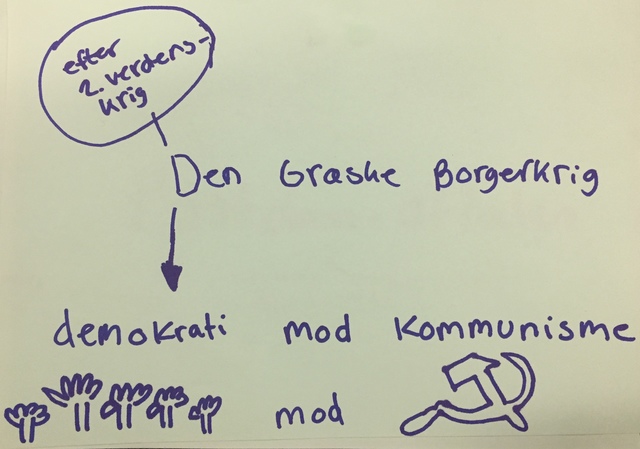 efter
2. verdens-
krig
Den Græske Borgerkrig
demokrati mod Kommunisme
mod